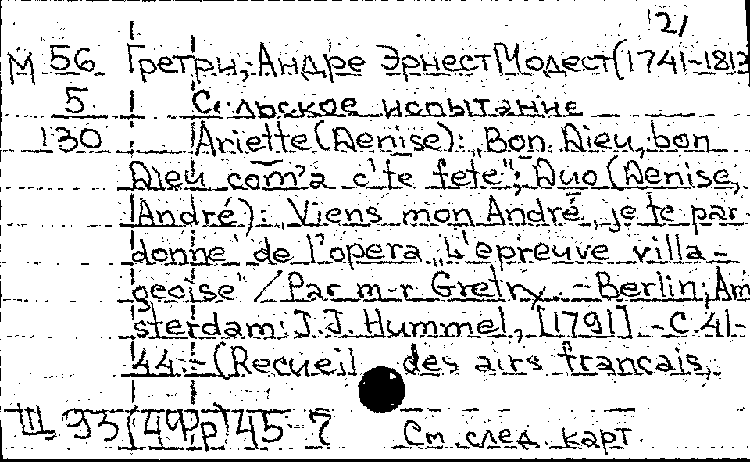 2/
М 56 Гретри, Андре Эрнест Модест (1741-1813
5 Сельское испытание
130 Ariette (Denise): „Bon Dieu, bon
Dieu com'a c'te fete"; Duo (Denise,
André): „Viens mon André, je te par
donne" de l'opera „L'epreuve villa-
geoise" / Par m-r Gretry. - Berlin; Am
sterdam: J.J. Hummel, [1791]. - С. 41-
44. - (Recueil des airs francais,
Ш 93(4Фр)45-7 См. след. карт.